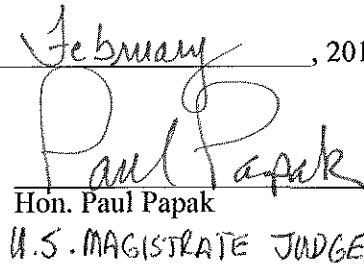 February, 201
Paul Papak
Hon. Paul Papak
U.S. MAGISTRATE JUDGE